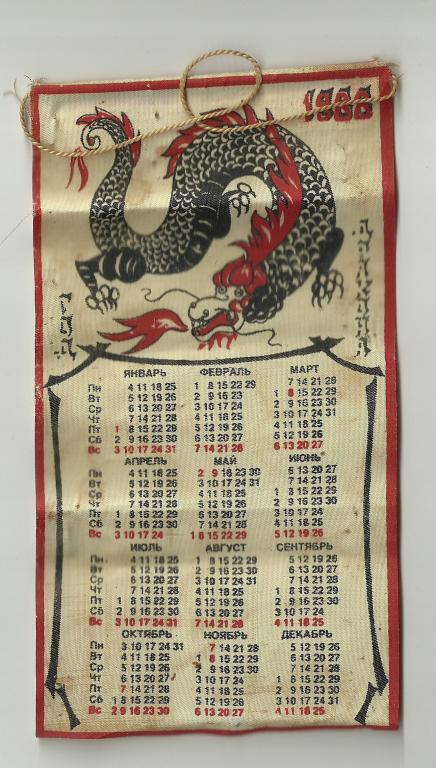 1988
ЯНВАРЬ ФЕВРАЛЬ МАРТ
Пн 4 11 18 25 1 8 15 22 29 7 14 21 28
Вт 5 12 19 26 2 9 16 23 1 8 15 22 29
Ср 6 13 20 27 3 10 17 24 2 9 16 23 30
Чт 7 14 21 28 4 11 18 25 3 10 17 24 31
Пт 1 8 15 22 29 5 12 19 26 4 11 18 25
Сб 2 9 16 23 30 6 13 20 27 5 12 19 26
Вс 3 10 17 24 31 7 14 21 28 6 13 20 27
АПРЕЛЬ МАЙ ИЮНЬ
Пн 4 11 18 25 2 9 16 23 30 6 13 20 27
Вт 5 12 19 26 3 10 17 24 31 7 14 21 28
Ср 6 13 20 27 4 11 18 25 1 8 15 22 29
Чт 7 14 21 28 5 12 19 26 2 9 16 23 30
Пт 1 8 15 22 29 6 13 20 27 3 10 17 24
Сб 2 9 16 23 30 7 14 21 28 4 11 18 25
Вс 3 10 17 24 1 8 15 22 29 5 12 19 26
ИЮЛЬ АВГУСТ СЕНТЯБРЬ
Пн 4 11 18 25 1 8 15 22 29 5 12 19 26
Вт 5 12 19 26 2 9 16 23 30 6 13 20 27
Ср 6 13 20 27 3 10 17 24 31 7 14 21 28
Чт 7 14 21 28 4 11 18 25 1 8 15 22 29
Пт 1 8 15 22 29 5 12 19 26 2 9 16 23 30
Сб 2 9 16 23 30 6 13 20 27 3 10 17 24
Вс 3 10 17 24 31 7 14 21 28 4 11 18 25
ОКТЯБРЬ НОЯБРЬ ДЕКАБРЬ
Пн 3 10 17 24 31 7 14 21 28 5 12 19 26
Вт 4 11 18 25 1 8 15 22 29 6 13 20 27
Ср 5 12 19 26 2 9 16 23 30 7 14 21 28
Чт 6 13 20 27 3 10 17 24 1 8 15 22 29
Пт 7 14 21 28 4 11 18 25 2 9 16 23 30
Сб 1 8 15 22 29 5 12 19 26 3 10 17 24 31
Вс 2 9 16 23 30 6 13 20 27 4 11 18 25